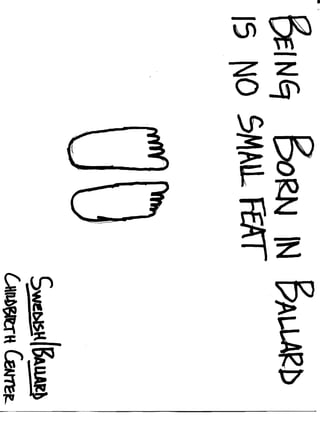 BEING BORN IN BALLARD
IS NO SMALL FEAT
SWEDISH/BALLARD
CHILDBIRTH CENTER